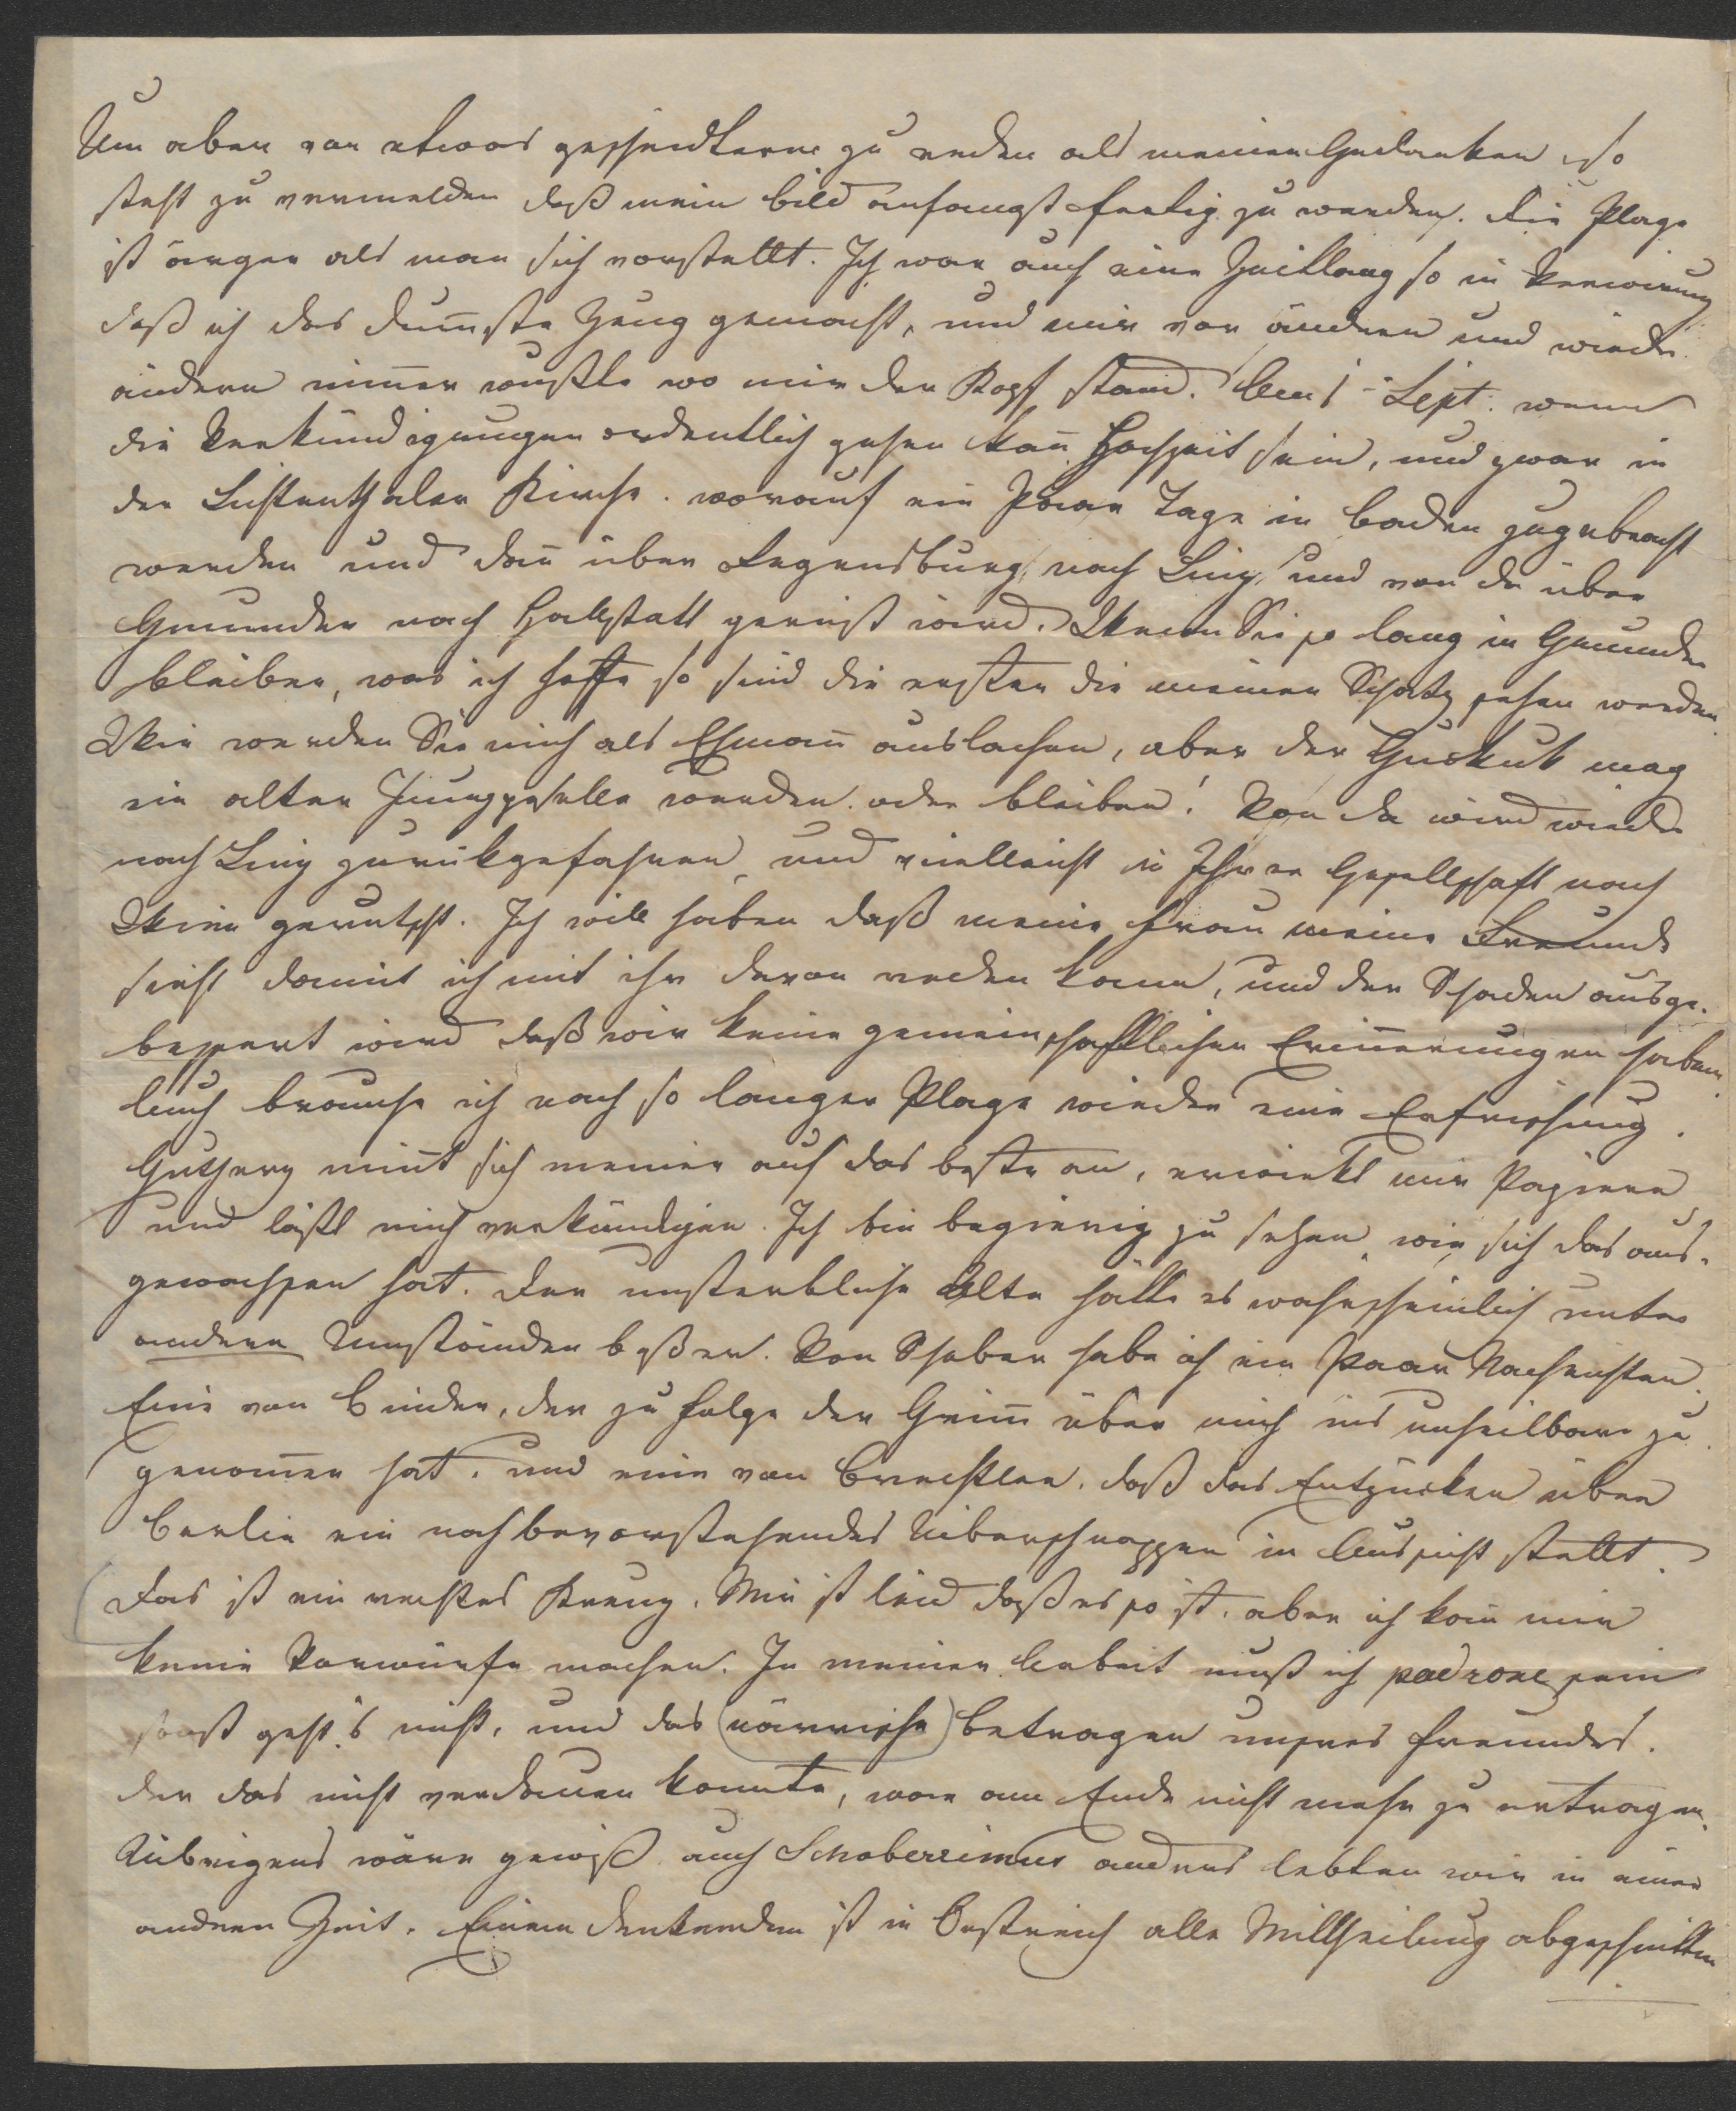 Um aber von etwas gescheidterm zu reden als meinen Gedanken so
steht zu vermelden daß mein Bild anfangst fertig zu werden. Die Plage
ist ärger als man sich vorstellt. Ich war auch eine Zeitlang so in Verwirrung
daß ich das dum̅ste Zeug gemacht, und mir vor ändern und wieder
ändern nim̅er wußte wo mir der Kopf stand. Am 1 Sept. wenn
die Verkündigungen ordentlich gehen kan̅ Hochzeit sein, und zwar in
der Lichtenthaler Kirche. worauf ein Paar Tage in Baden zugebracht
werden und dan̅ über Regensburg, nach Linz, und von da über
Gmunden nach Hallstatt gereist wird. Wenn Sie so lang in Gmunden
bleiben, was ich hoffe so sind die ersten die meinen Schatz sehen werden.
Wie werden Sie mich als Ehman̅ auslachen, aber der Guckuk mag
ein alter Junggeselle werden oder bleiben! Von da wird wieder
nach Linz zurükgefahren, und vielleicht in Ihrer Gesellschaft nach
Wien gerutscht. Ich will haben daß meine Frau meine Freunde
sieht damit ich mit ihr davon reden kann, und der Schaden ausge-
bessert wird daß wir keine gemeinschaftlichen Erin̅erungen haben.
Auch brauche ich nach so langer Plage wieder eine Erfrischung.
Gutherz nim̅t sich meiner auf das beste an, erwirkt mir Papiere
und läßt mich verkündigen. Ich bin begierig zu sehen, wie sich das aus-
gewachsen hat. Der unsterbliche Alte hätte es wahrscheinlich unter
andern Umständen beßer. Von Schober habe ich ein Paar Nachrichten.
Eine von Binder, der zu folge der Grim̅ über mich ins unheilbare zu
genom̅en hat. und eine von Brechtler, daß das Entzücken über
Berlin ein noch bevorstehendes Überschnappen in Aussicht stellt.
Das ist ein rechtes Kreuz. Mir ist leid daß es so ist. aber ich kan̅ mir
keine Vorwürfe machen. In meiner Arbeit muß ich padrone sein
sonst geht's nicht, und das (närrische) Betragen unsres Freundes.
der das nicht verdauen konnte, war am Ende nicht mehr zu ertragen.
Übrigens wäre gewiß auch Schoberrimus anders lebten wir in einer
andern Zeit. Einem denkenden ist in Oestreich alle Mittheilung abgeschnitten